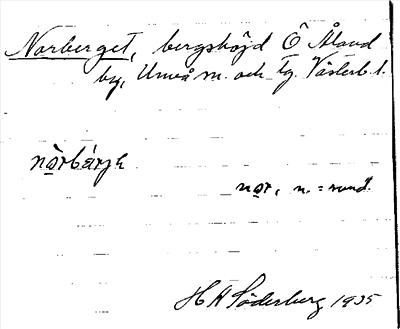 Norberget, bergshöjd Ö Åland
by, Umeå sn. och tg. Västerb. l.
nòrbárjə
nor, n. = sund.
H A Söderberg 1935